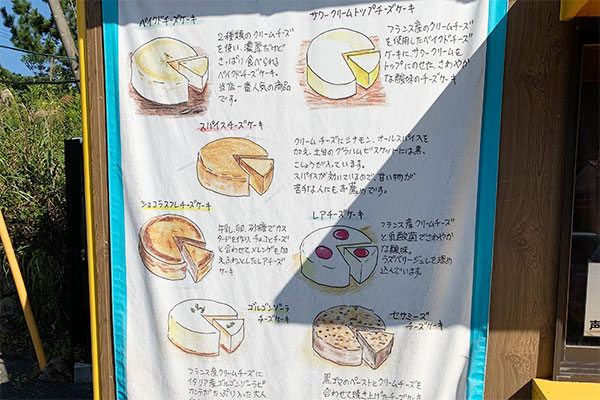 ベイクドチーズケーキ
2種類のクリームチーズ
を使い、濃厚だけど
さっぱり食べられる
ベイクドチーズケーキ。
当店一番人気の商品
です。
サワークリームトップチーズケーキ
フランス産のクリームチーズ
を使用したベイクドチーズ
ケーキに、サワークリームを
トップにのせた、さわやか
な酸味のチーズケーキ
スパイスチーズケーキ
クリームチーズにシナモン、オールスパイスを
加え、土台のグラハムビスケットには黒
こしょうが入っています。
スパイスが効いているので、甘い物が
苦手な人にもお薦めです。
ショコラスフレチーズケーキ
牛乳、卵、砂糖でカス
タードを作り、チョコとチーズ
と合わせてメレンゲを加
えふわっとしたレアチーズ
ケーキ
レアチーズケーキ
フランス産クリームチーズ
と乳酸菌でさわやか
な酸味。
ラズベリージュレを埋め
込んでいます。
ゴルゴンゾーラ
チーズケーキ
フランス産クリームチーズに
イタリア産ゴルゴンゾーラピ
カンテがたっぷり入った大人
セサミーズ
チーズケーキ
黒ゴマのペーストとクリームチーズを
合わせて焼き上げたチーズケーキ
声